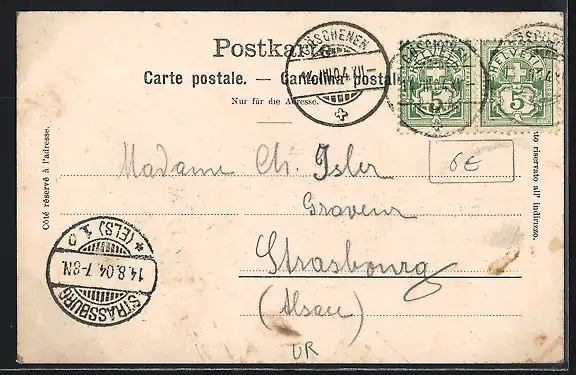 Postkarte.
Carte postale. — Cartolina postale
Nur für die Adresse.
GÖSCHENEN
VIII.04.XII
HELVETIA
5
HELVETIA
5
6€
Côté réservé à l'adresse.
riservato all' indirizzo.
Madame Ch. Isler
Graveur
Strasbourg
(Alsace)
UR
STRASSBURG
14.8.04.7-8N.
* (ELS) 1 o